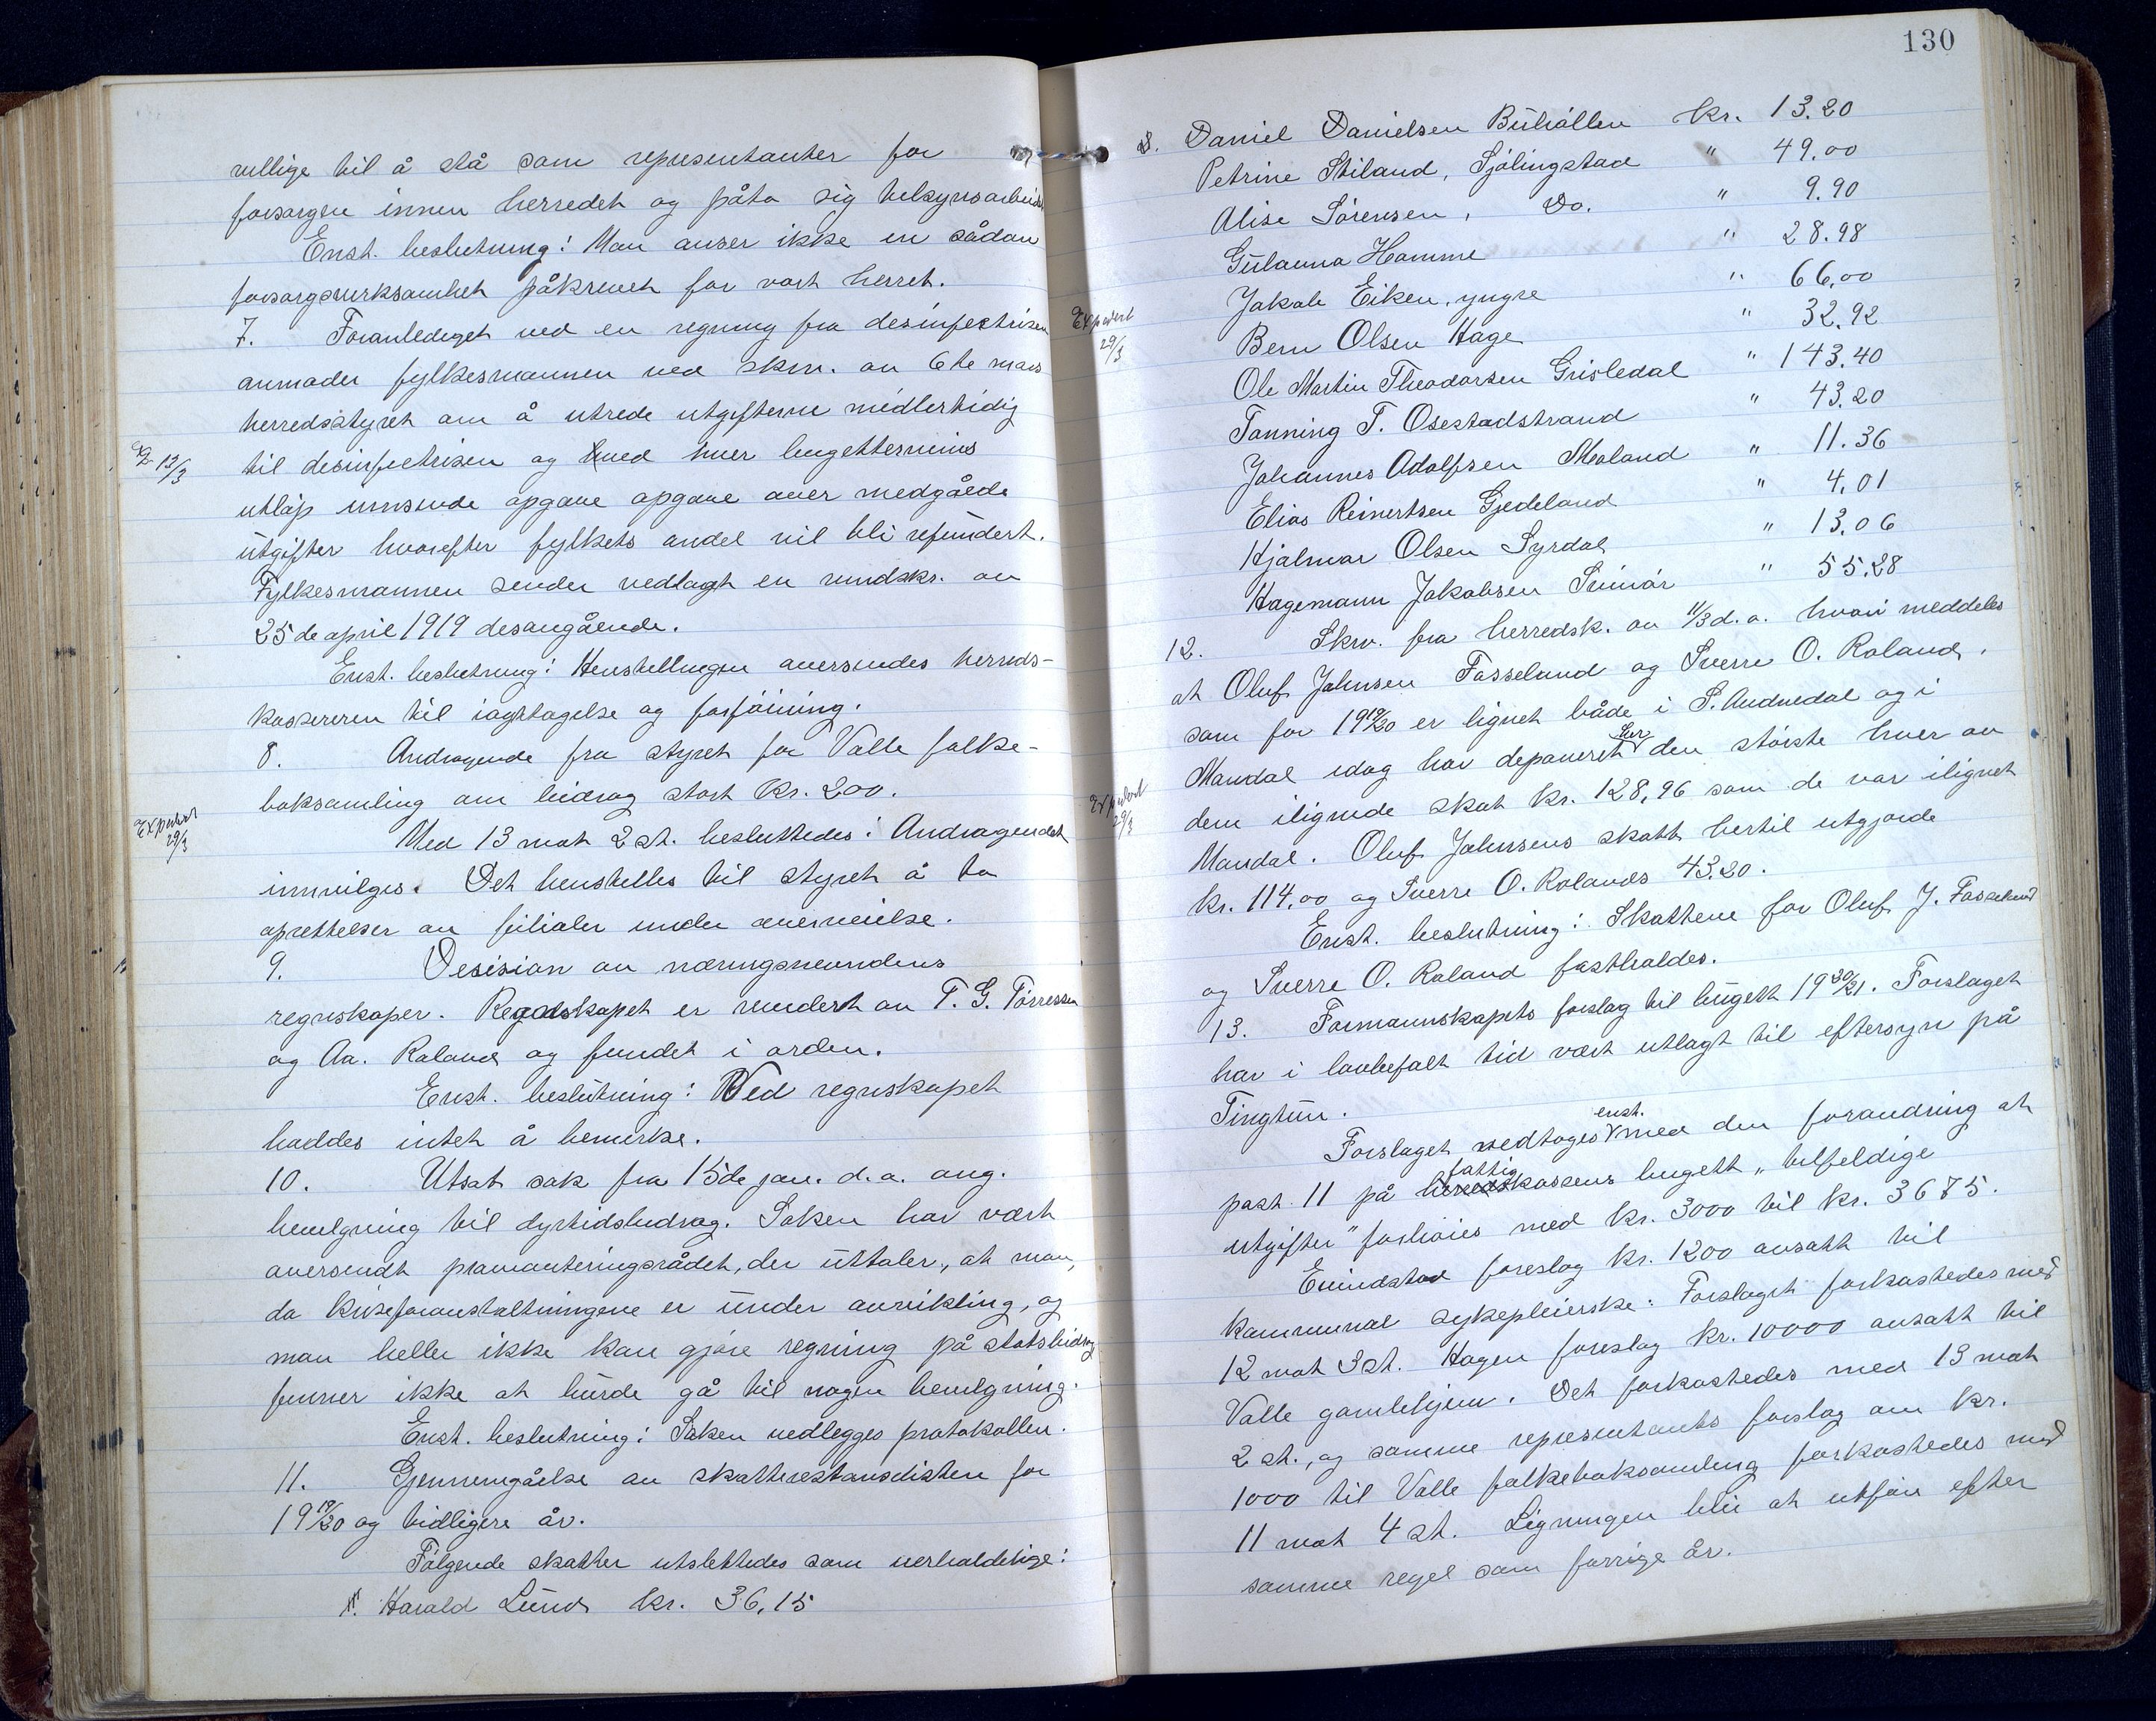 villige til å stå som representanter for
forsorgen innen herredet og påta sig tilsynsarbeidet
Enst. beslutning: Man anser ikke en sådan
forsorgsvirksomhet påkrevet for vort herret.
7. Foranlediget ved en regning fra desinfektrisen
anmoder fylkesmannen ved skrv. av 6te mars
herredsstyret om å utrede utgifterne midlertidig
Ex 13/3
til desinfectrisen og ved hver bugettermins
utløp innsende opgave opgave over medgåede
utgifter hvorefter fylkets andel vil bli refundert.
Fylkesmannen sender vedlagt en rundskr. av
25de april 1919 desangående.
Enst. beslutning: Henstillingen oversendes herreds-
kassereren til iagttagelse og forføining.
8. Andragende fra styret for Valle folke-
boksamling om bidrag stort kr. 200.
Expedert
29/3
Med 13 mot 2 st. besluttedes: Andragendet
innvilges. Det henstilles til styret å ta
oprettelser av filialer under overveielse.
9. Desision av næringsnevndens
regnskaper. Regnskapet er revidert av T. G. Tørressen
og Aa. Roland og fundet i orden.
Enst. beslutning: Ved regnskapet
haddes intet å bemerke.
10. Utsat sak fra 15de jan. d.a. ang.
bevilgning til dyrtidsbidrag. Saken har vært
oversendt provianteringsrådet, der uttaler, at man,
da kriseforanstaltningene er under avvikling, og
man heller ikke kan gjøre regning på statsbidrag
finner ikke at burde gå til nogen bevilgning.
Enst. beslutning: Saken vedlegges protokollen.
11. Gjennemgåelse av skatterestanselisten for
1919/20 og tidligere år.
Følgende skatter utslettedes som uerholdelige:
Harald Lund kr. 36,15
130
Daniel Danielsen Buhøllen kr. 13.20
Petrine Stiland, Sjølingstad " 49.00
Alise Sørensen, Do. " 9.90
Gulauna Homme " 28.98
Jakob Eiken, yngre " 66,00
Expedert
29/3
Bern Olsen Hage " 32.92
Ole Martin Theodorsen Grisledal " 143.40
Tønning T. Osestadstrand " 43.20
Johannes Adolfsen Møland " 11.36
Elias Reinertsen Gjedeland " 4,01
Hjalmar Olsen Syrdal " 13,06
Hagemann Jakobsen Svinør " 55,28
12. Skrv. fra herredsk. av 11/3 d.a. hvori meddeles
at Oluf Johnsen Fasseland og Sverre O. Roland,
som for 1919/20 er lignet både i S. Audnedal og i
Mandal idag har deponeret her den største hver av
Expedert
29/3
dem ilignede skat kr. 128,96 som de var ilignet
Mandal. Oluf Johnsens skatt hertil utgjorde
kr. 114,00 og Sverre O. Rolands 43.20.
Enst. beslutning: Skattene for Oluf J. Fasseland
og Sverre O. Roland fastholdes.
13. Formannskapets forslag til bugett 1920/21. Forslaget
har i lovbefalt tid vært utlagt til eftersyn på
Tingtun.
Forslaget vedtoges enst. med den forandring at
post. 11 på fattigkassens bugett „tilfeldige
utgifter" forhøies med kr. 3000 til kr. 3675.
Evindstad foreslog kr. 1200 avsatt til
kommunal sykepleierske: Forslaget forkastedes med
12 mot 3 st. Hagen foreslog kr. 10000 avsatt til
Valle gamlehjem. Det forkastedes med 13 mot
2 st., og samme representants forslag om kr.
1000 til Valle folkeboksamling forkastedes med
11 mot 4 st. Ligningen blir at utføre efter
samme regel som forrige år.